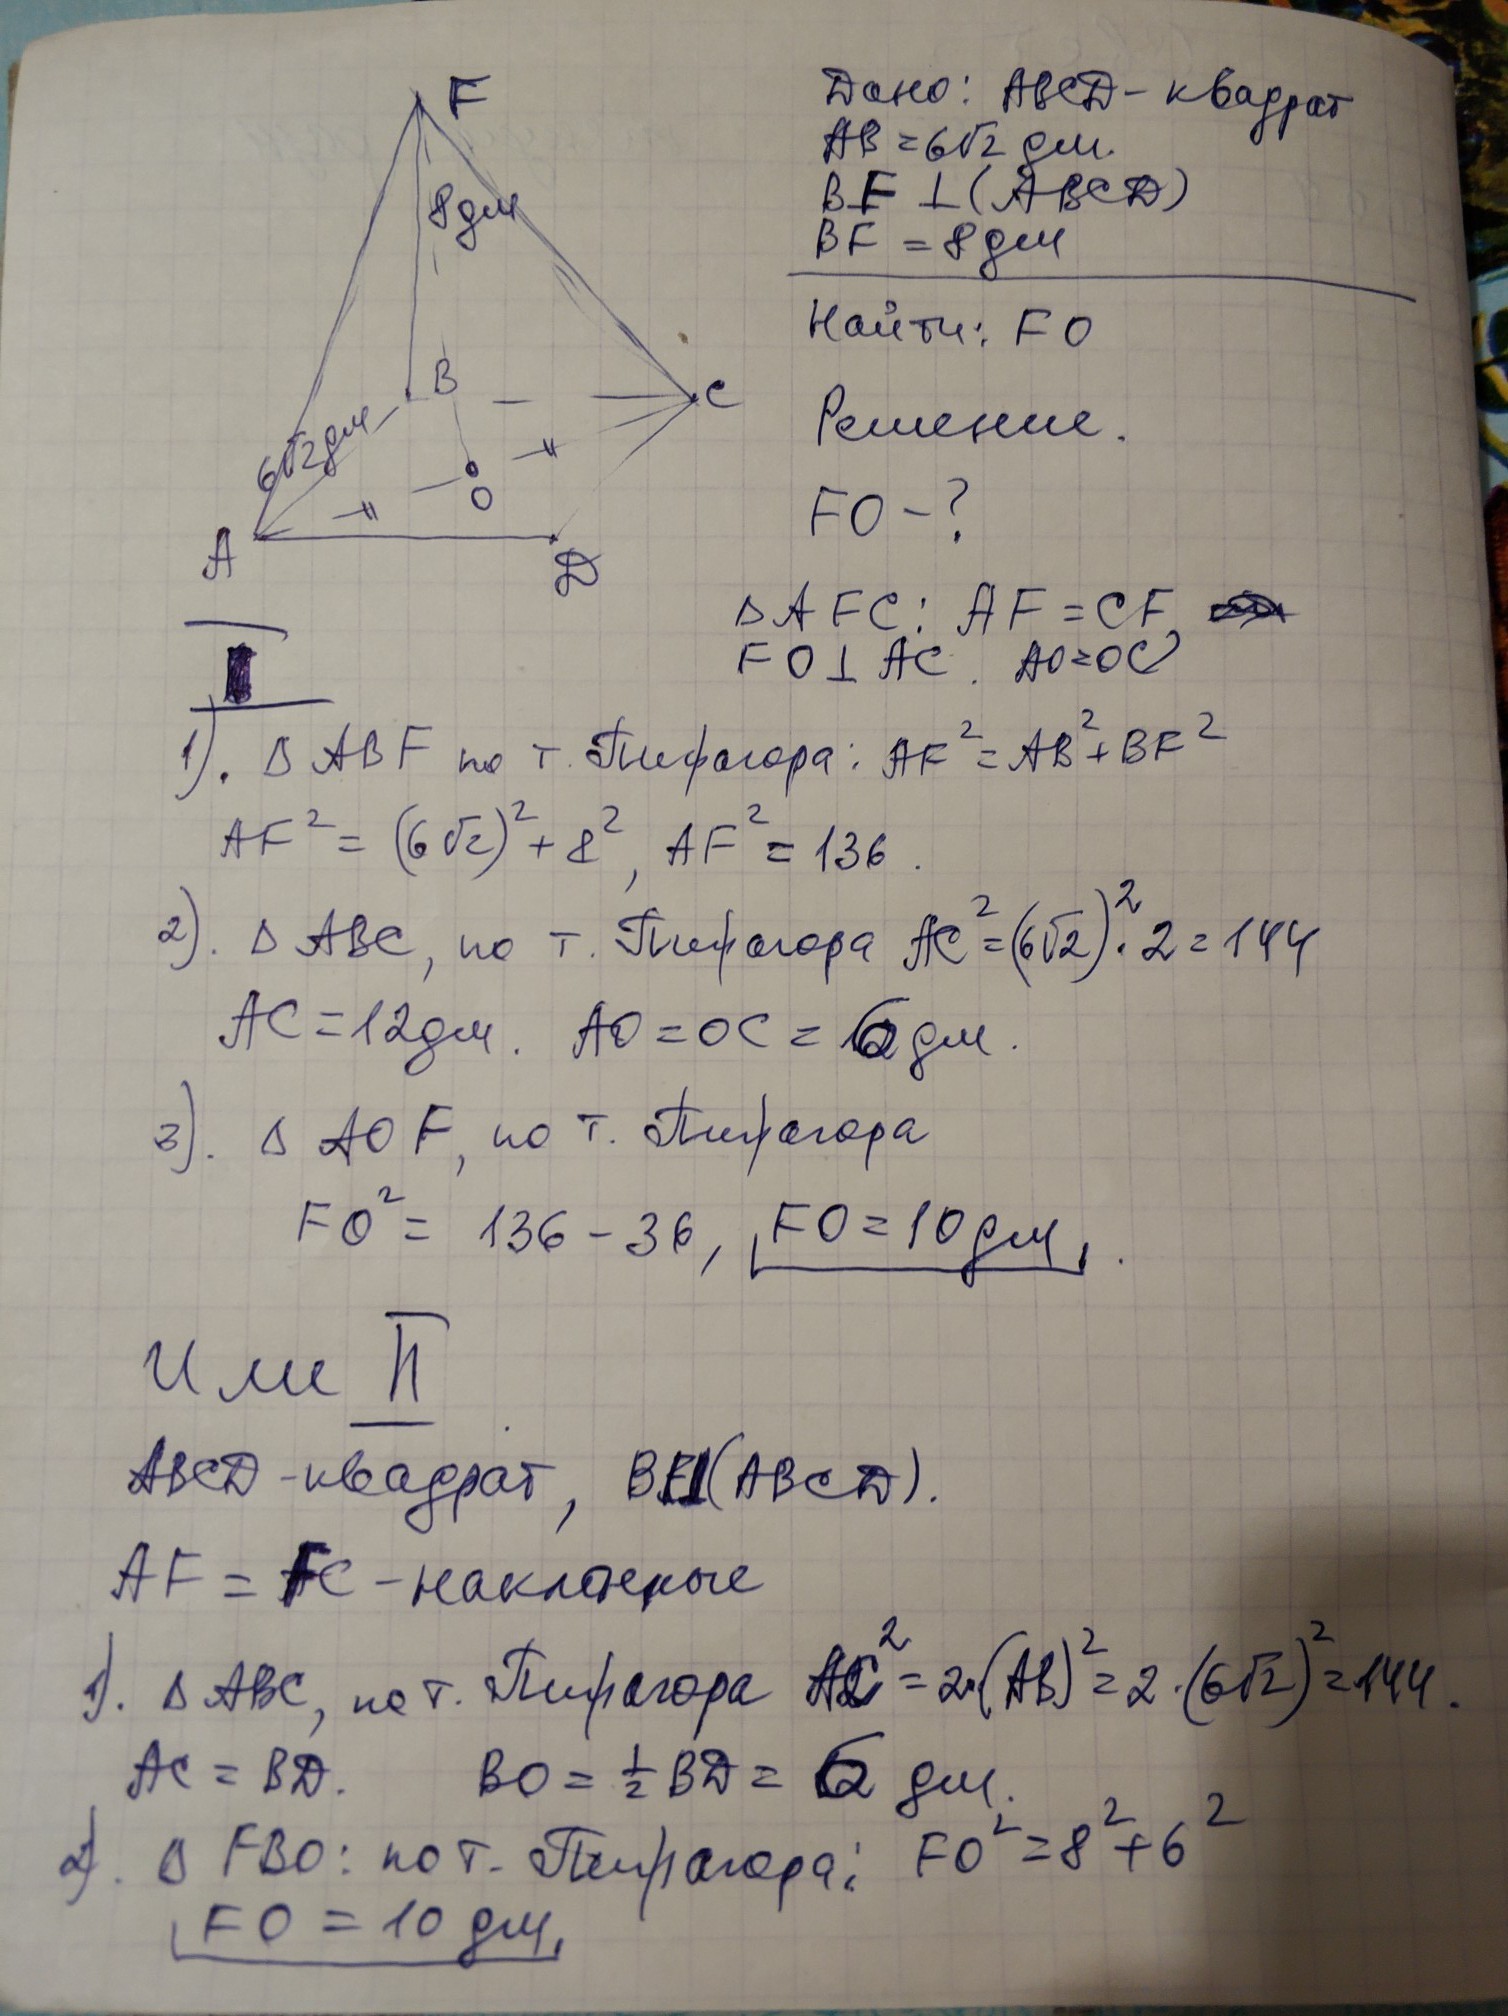 F
8дм
B
C
6√2дм
O
A
D
Дано: ABCD - квадрат
AB = 6√2 дм.
BF ⊥ (ABCD)
BF = 8дм
Найти: FO
Решение.
FO - ?
Δ AFC: AF = CF
FO ⊥ AC. AO = OC
I
1). Δ ABF по т. Пифагора: AF² = AB² + BF²
AF² = (6√2)² + 8², AF² = 136.
2). Δ ABC, по т. Пифагора AC² = (6√2)² · 2 = 144
AC = 12дм. AO = OC = 6 дм.
3). Δ AOF, по т. Пифагора
FO² = 136 - 36, FO = 10 дм.
Или II
ABCD - квадрат, BF ⊥ (ABCD).
AF = FC - наклонные
1). Δ ABC, по т. Пифагора AC² = 2·(AB)² = 2·(6√2)² = 144.
AC = BD. BO = ½ BD = 6 дм.
2). Δ FBO: по т. Пифагора: FO² = 8² + 6²
FO = 10 дм.